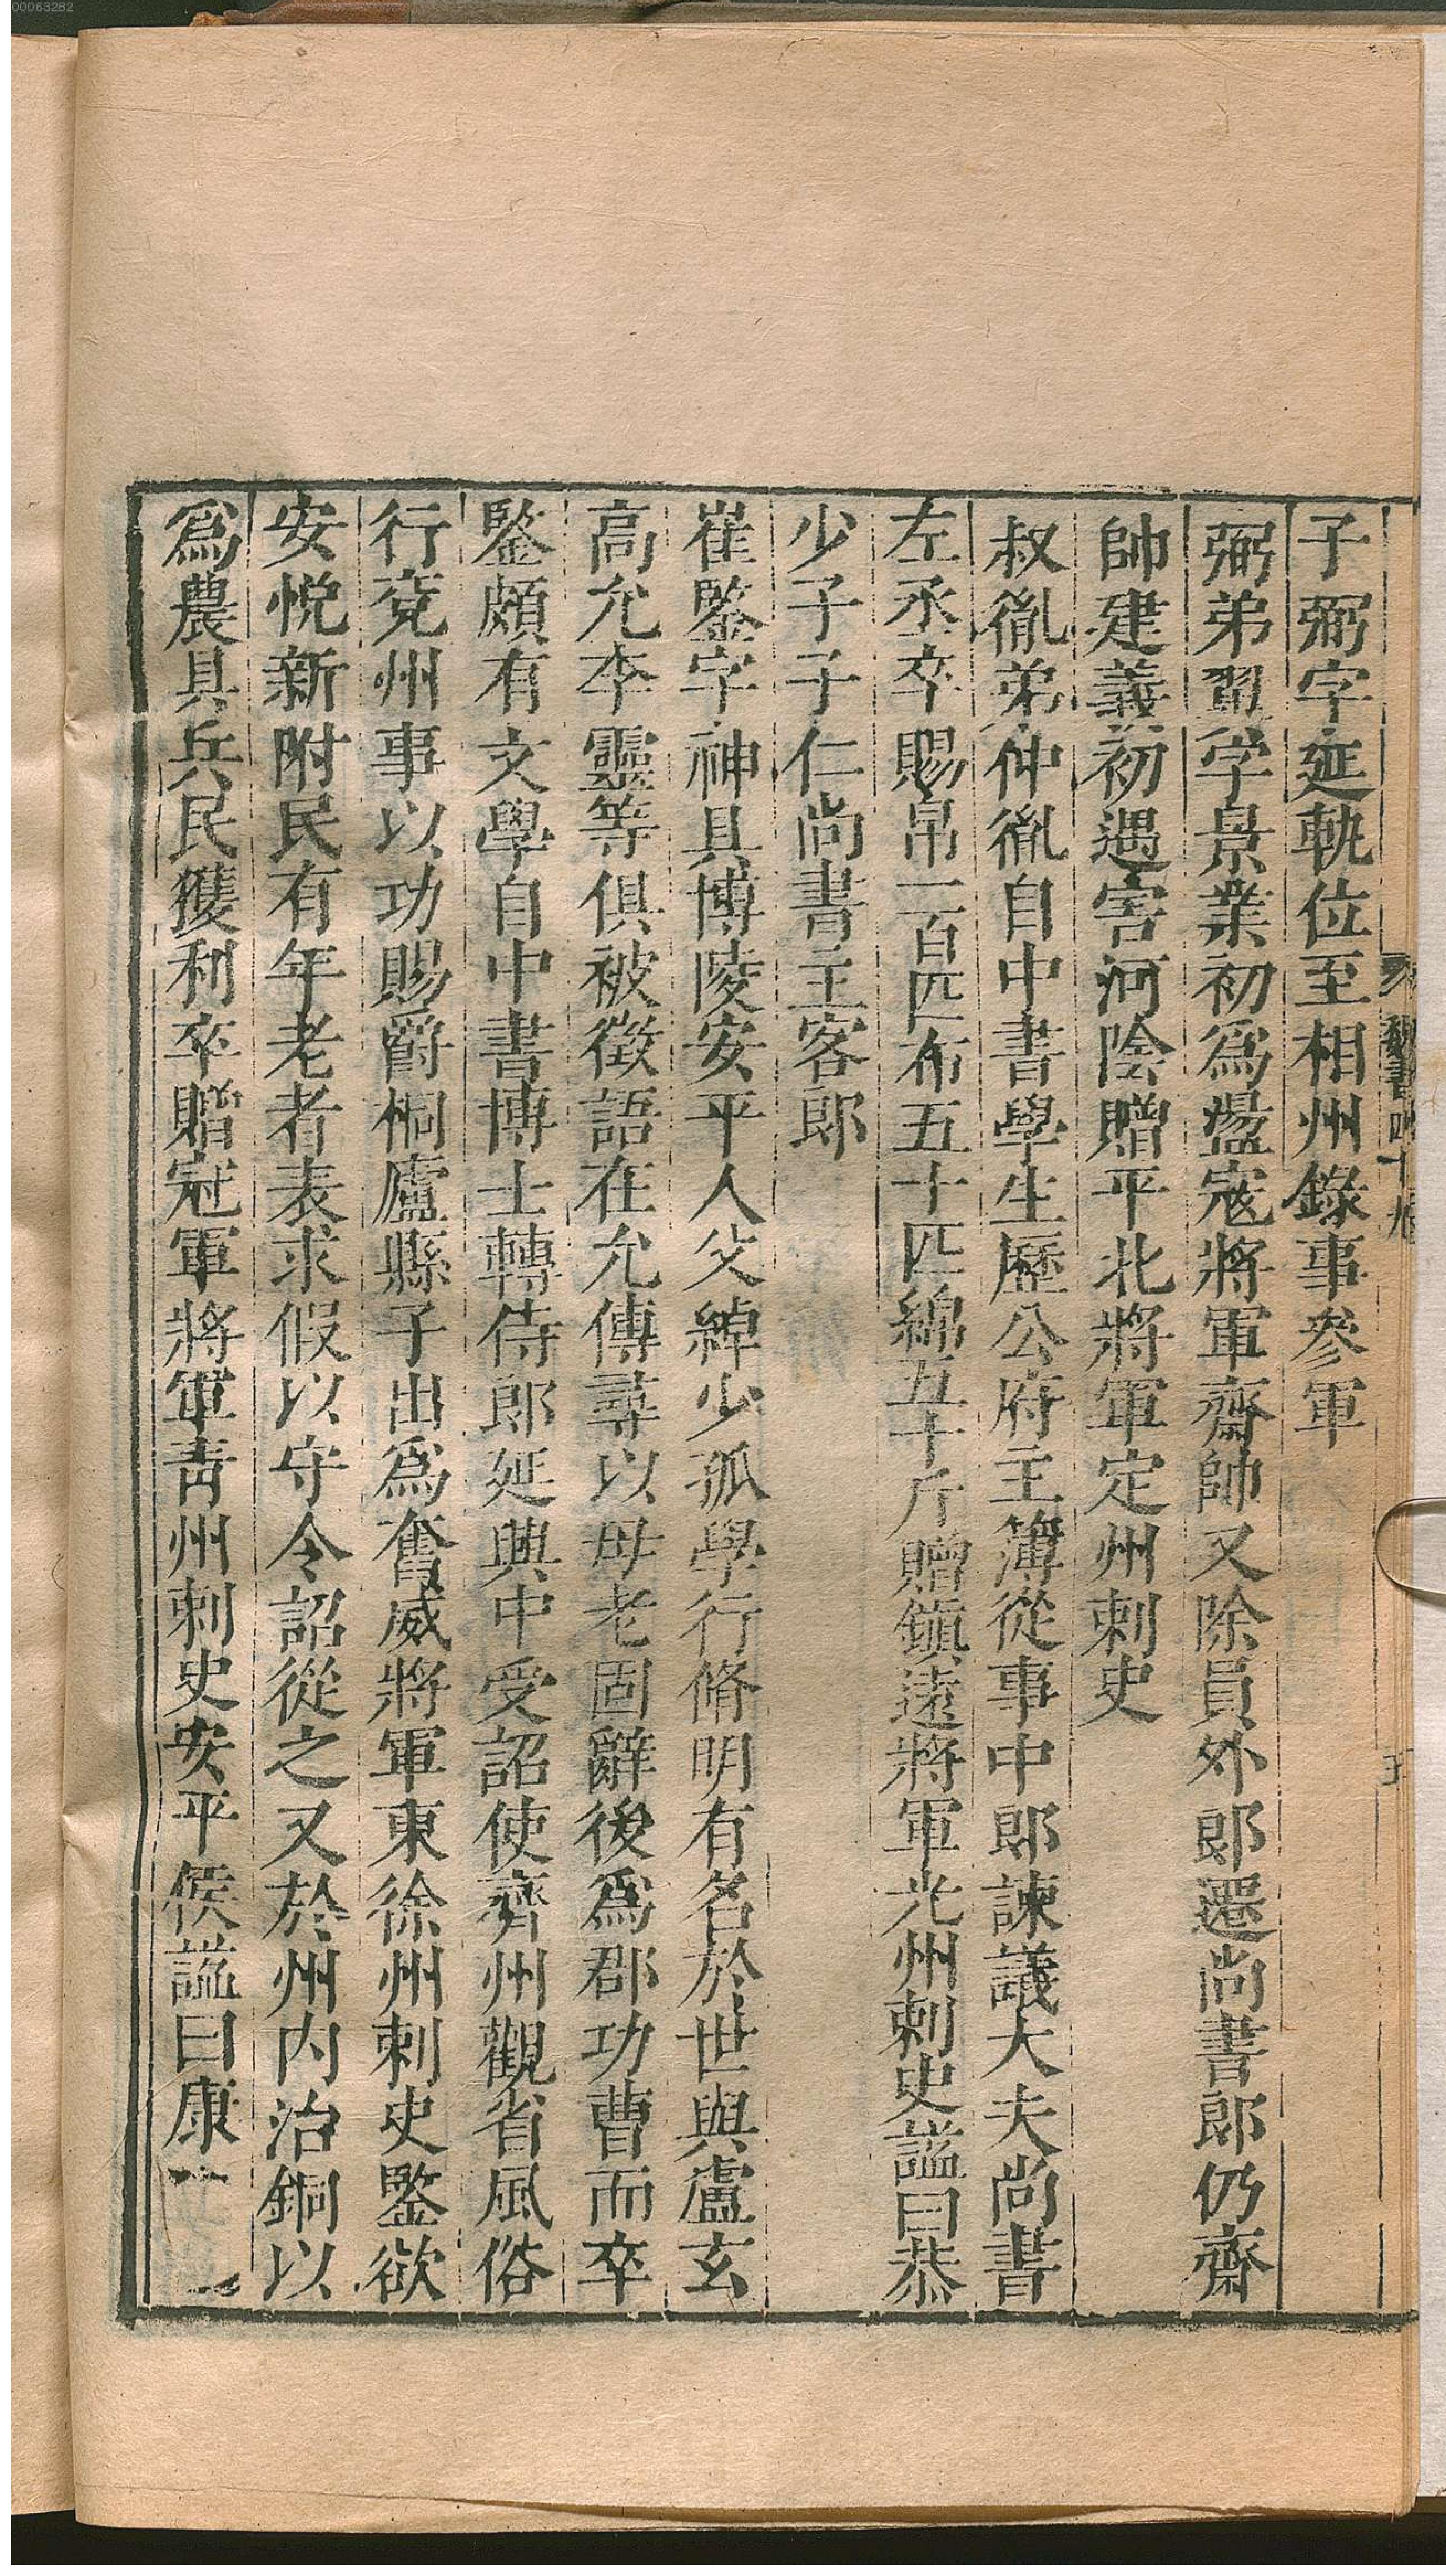 00063282
魏書四十九
子弼字延軌位至相州錄事參軍
弼弟翼字景業初爲盪寇將軍齋帥又除員外郎遷尚書郎仍齋
帥建義初遇害河陰贈平北將軍定州刺史
叔胤弟仲胤自中書學生歷公府主簿從事中郎諫議大夫尚書
左丞卒賜帛一百匹布五十匹綿五十斤贈鎮遠將軍光州刺史謚曰恭
少子子仁尚書主客郎
崔鑒字神具博陵安平人父綽少孤學行脩明有名於世與盧玄
高允李靈等俱被徵語在允傳尋以母老固辭後爲郡功曹而卒
鑒頗有文學自中書博士轉侍郎延興中受詔使齊州觀省風俗
行兗州事以功賜爵桐廬縣子出爲奮威將軍東徐州刺史鑒欲
安悅新附民有年老者表求假以守令詔從之又於州內治銅以
爲農具兵民獲利卒贈冠軍將軍青州刺史安平侯謚曰康